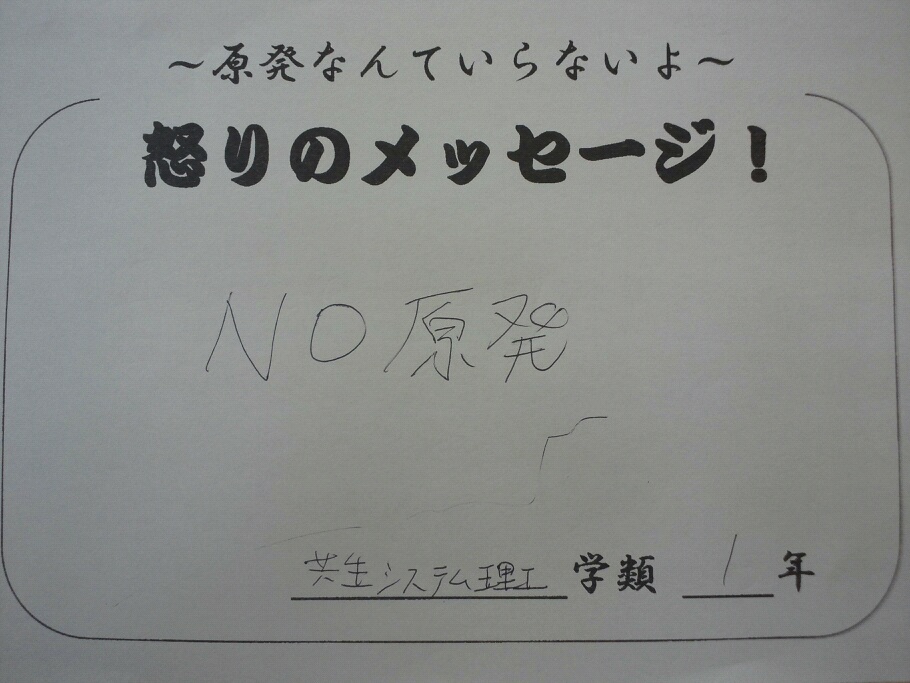 ～原発なんていらないよ～
怒りのメッセージ！
NO 原発
共生システム理工 学類 1 年